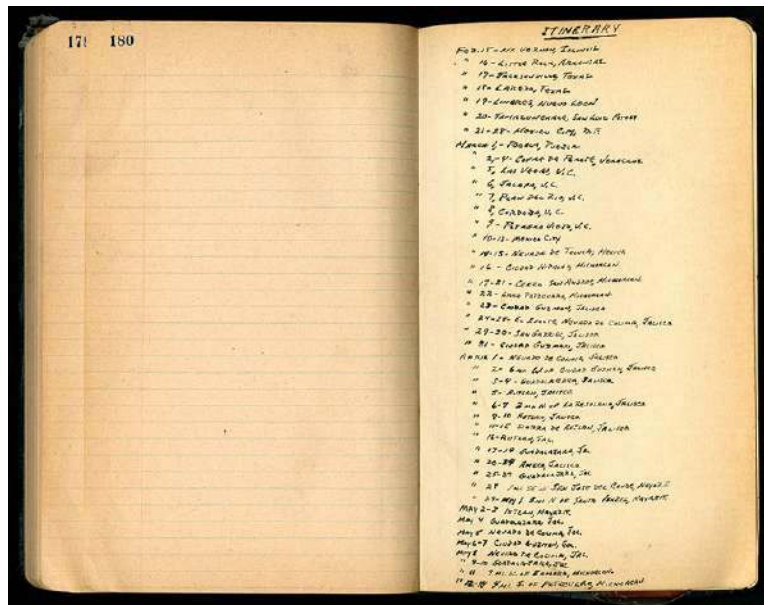 179 180
ITINERARY
FEB. 15 - MT. VERNON, ILLINOIS
" 16 - LITTLE ROCK, ARKANSAS
" 17 - JACKSONVILLE, TEXAS
" 18 - LAREDO, TEXAS
" 19 - LINARES, NUEVO LEON
" 20 - TAMAZUNCHALE, SAN LUIS POTOSI
" 21-28 - MEXICO CITY, D.F.
MARCH 1 - PUEBLA, PUEBLA
" 2-4 - COFRE DE PEROTE, VERACRUZ
" 5, LAS VEGAS, V.C.
" 6, JALAPA, V.C.
" 7, PLAN DEL RIO, V.C.
" 8, CORDOBA, V.C.
" 9 - POTRERO VIEJO, V.C.
" 10-13 - MEXICO CITY
" 14-15 - NEVADO DE TOLUCA, MEXICO
" 16 - CIUDAD HIDALGO, MICHOACAN
" 17-21 - CERRO SAN ANDRES, MICHOACAN
" 22 - LAKE PATZCUARO, MICHOACAN
" 23 - CIUDAD GUZMAN, JALISCO
" 24-28 - NEVADO DE COLIMA, JALISCO
" 29-30 - SAN GABRIEL, JALISCO
" 31 - CIUDAD GUZMAN, JALISCO
APRIL 1 - NEVADO DE COLIMA, JALISCO
" 2 - 6 mi W of CIUDAD GUZMAN, JALISCO
" 3-4 - GUADALAJARA, JALISCO
" 5 - AUTLAN, JALISCO
" 6-7 2 mi N of LA RESOLANA, JALISCO
" 8-10 AUTLAN, JALISCO
" 11-15 SIERRA DE AUTLAN, JALISCO
" 16 - AUTLAN, JAL.
" 17-19 GUADALAJARA, JAL
" 20-24 AMECA, JALISCO
" 25-27 GUADALAJARA, JAL
" 28 1 mi SE of SAN JOSE DEL CONDE, NAYARIT
" 29-MAY 1 8 mi N of SANTA ISABEL, NAYARIT
MAY 2-3 IXTLAN, NAYARIT
MAY 4 GUADALAJARA, JAL.
MAY 5 NEVADO DE COLIMA, JAL.
MAY 6-7 CIUDAD GUZMAN, JAL.
MAY 8 NEVADO DE COLIMA, JAL.
" 9-10 GUADALAJARA, JAL
" 11 7 mi. of ZAMORA, MICHOACAN
" 12-13 9 mi. S. of PATZCUARO, MICHOACAN